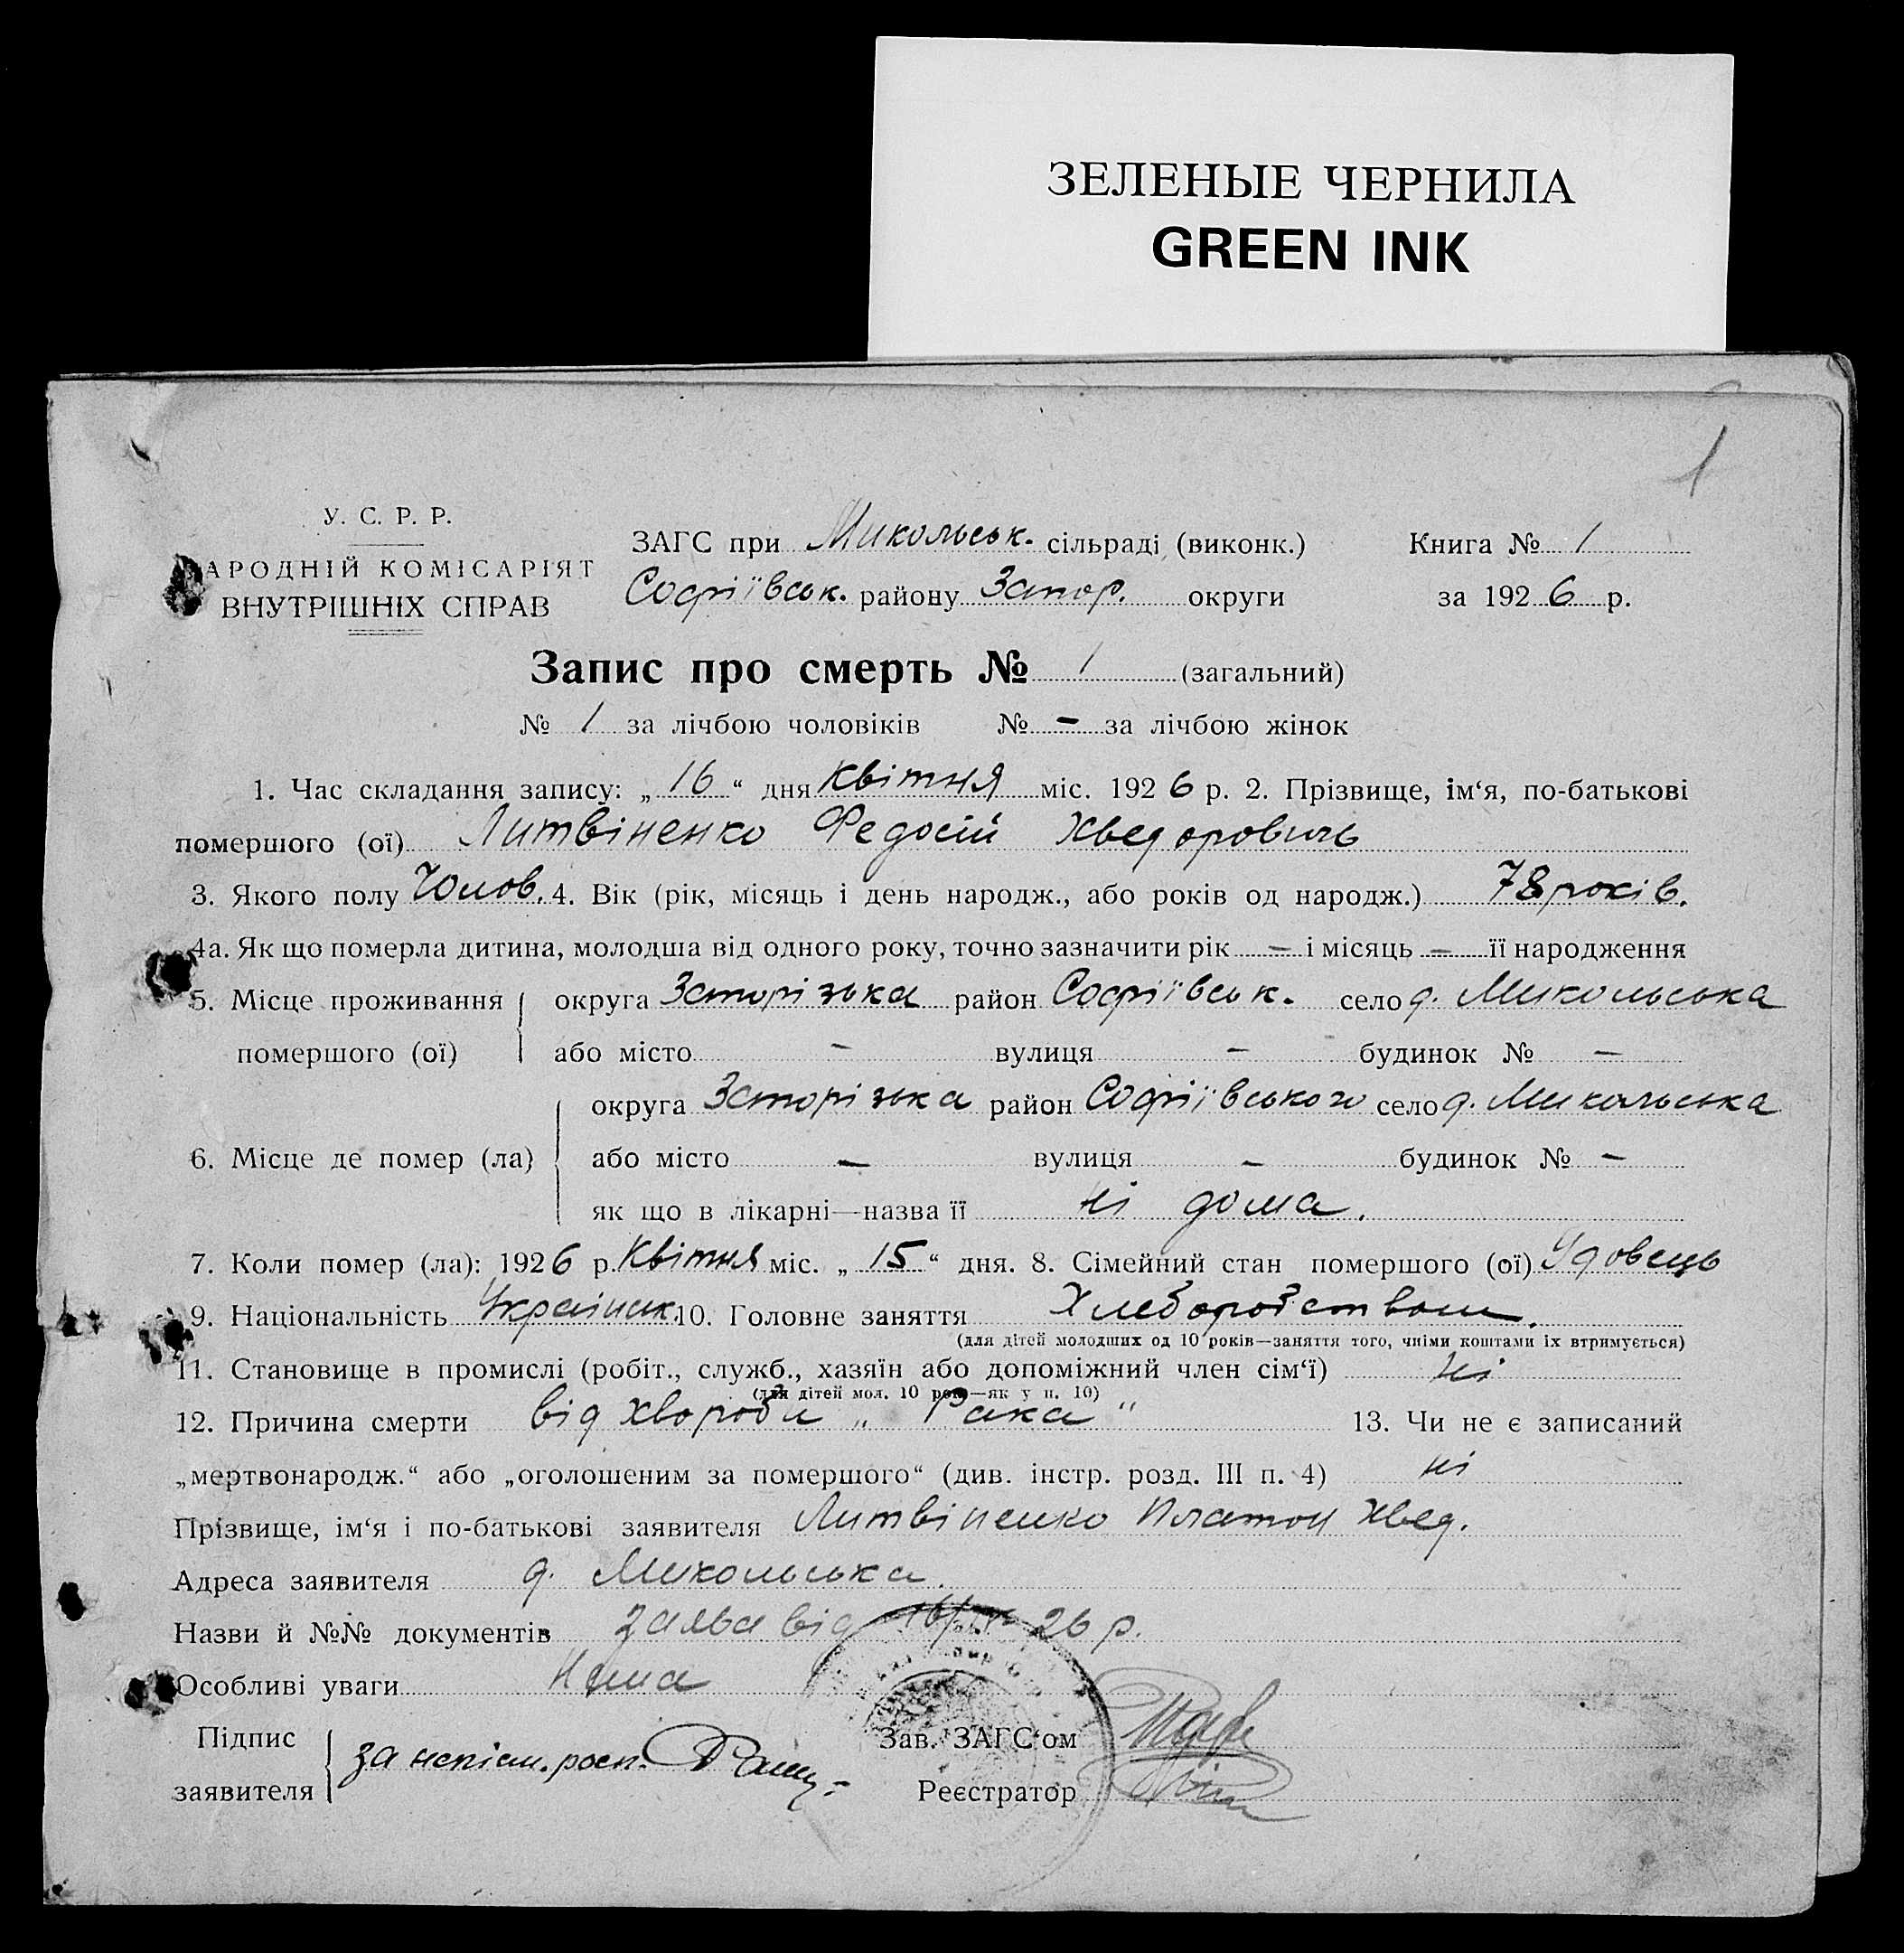 ЗЕЛЕНЫЕ ЧЕРНИЛА
GREEN INK
1
У. С. Р. Р.
АРОДНІЙ КОМІСАРІЯТ
ВНУТРІШНІХ СПРАВ
ЗАГС при Микольськ. сільраді (виконк.) Книга № 1
Софіївськ. району Запор. округи за 1926 р.
Запис про смерть № 1 (загальний)
№ 1 за лічбою чоловіків № – за лічбою жінок
1. Час складання запису: „16“ дня Квітня міс. 1926 р. 2. Прізвище, ім‘я, по-батькові
помершого (ої) Литвіненко Федосій Хведоровичь
3. Якого полу Чолов. 4. Вік (рік, місяць і день народж., або років од народж.) 78 років.
4а. Як що померла дитина, молодша від одного року, точно зазначити рік – і місяць – її народження
5. Місце проживання округа Запорізька район Софіївськ. село д. Микольська
помершого (ої) або місто – вулиця – будинок № –
округа Запорізька район Софіївського село д. Микольська
6. Місце де помер (ла) або місто – вулиця – будинок № –
як що в лікарні—назва її ні дома.
7. Коли помер (ла): 1926 р. Квітня міс. „15“ дня. 8. Сімейний стан помершого (ої) Удовець
9. Національність Українськ. 10. Головне заняття Хлеборобством.
(для дітей молодших од 10 років—заняття того, чиїми коштами їх втримується)
11. Становище в промислі (робіт., служб., хазяїн або допоміжний член сім‘ї) ні
(для дітей мол. 10 рок.—як у п. 10)
12. Причина смерти від хвороби „Рака“ 13. Чи не є записаний
„мертвонародж.“ або „оголошеним за помершого“ (див. інстр. розд. III п. 4) ні
Прізвище, ім‘я і по-батькові заявителя Литвіненко Платон Хвед.
Адреса заявителя д. Микольська.
Назви й №№ документів Заява від 16/IV 26 р.
Особливі уваги Нема
Підпис за непісм. росп. Зав. ЗАГС‘ом
заявителя Реєстратор